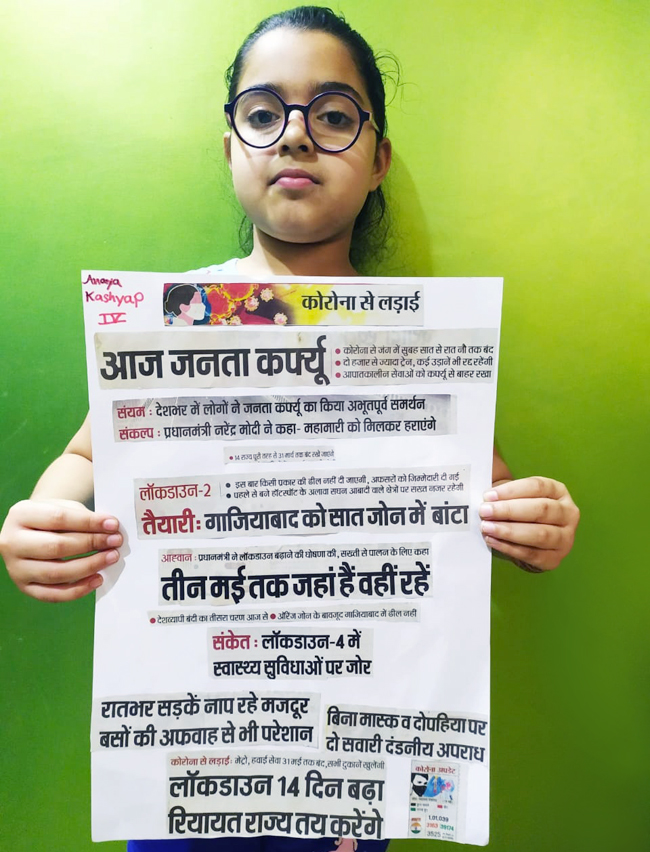 Ananya
Kashyap
IV
कोरोना से लड़ाई
आज जनता कर्फ्यू
• कोरोना से जंग में सुबह सात से रात नौ तक बंद
• दो हजार से ज्यादा ट्रेन, कई उड़ानें भी रद्द रहेंगी
• आपातकालीन सेवाओं को कर्फ्यू से बाहर रखा
संयम : देशभर में लोगों ने जनता कर्फ्यू का किया अभूतपूर्व समर्थन
संकल्प : प्रधानमंत्री नरेंद्र मोदी ने कहा- महामारी को मिलकर हराएंगे
• 14 राज्य पूरी तरह से 31 मार्च तक बंद रखे जाएंगे
लॉकडाउन-2
• इस बार किसी प्रकार की ढील नहीं दी जाएगी, अफसरों को जिम्मेदारी दी गई
• पहले से बने हॉटस्पॉट के अलावा सघन आबादी वाले क्षेत्रों पर सख्त नजर रहेगी
तैयारी: गाजियाबाद को सात जोन में बांटा
आह्वान : प्रधानमंत्री ने लॉकडाउन बढ़ाने की घोषणा की, सख्ती से पालन के लिए कहा
तीन मई तक जहां हैं वहीं रहें
• देशव्यापी बंदी का तीसरा चरण आज से • ऑरेंज जोन के बावजूद गाजियाबाद में ढील नहीं
संकेत : लॉकडाउन-4 में
स्वास्थ्य सुविधाओं पर जोर
रातभर सड़कें नाप रहे मजदूर
बसों की अफवाह से भी परेशान
बिना मास्क व दोपहिया पर
दो सवारी दंडनीय अपराध
कोरोना से लड़ाई: मेट्रो, हवाई सेवा 31 मई तक बंद, सभी दुकानें खुलेंगी
लॉकडाउन 14 दिन बढ़ा
रियायत राज्य तय करेंगे
कोरोना अपडेट
1,01,039
3163 39174
3925